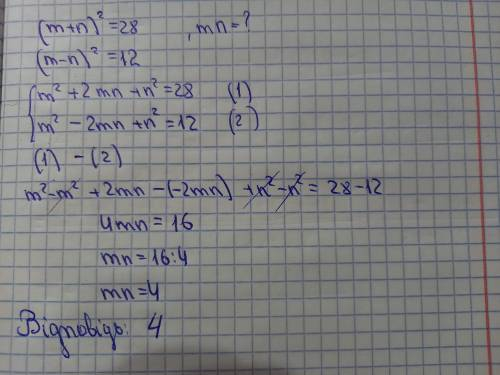 (m+n)²=28 , mn=?
(m-n)²=12
{ m²+2mn+n²=28 (1)
m²-2mn+n²=12 (2)
(1) - (2)
m²-m²+2mn-(-2mn)+n²-n²=28-12
4mn=16
mn=16:4
mn=4
Відповідь: 4